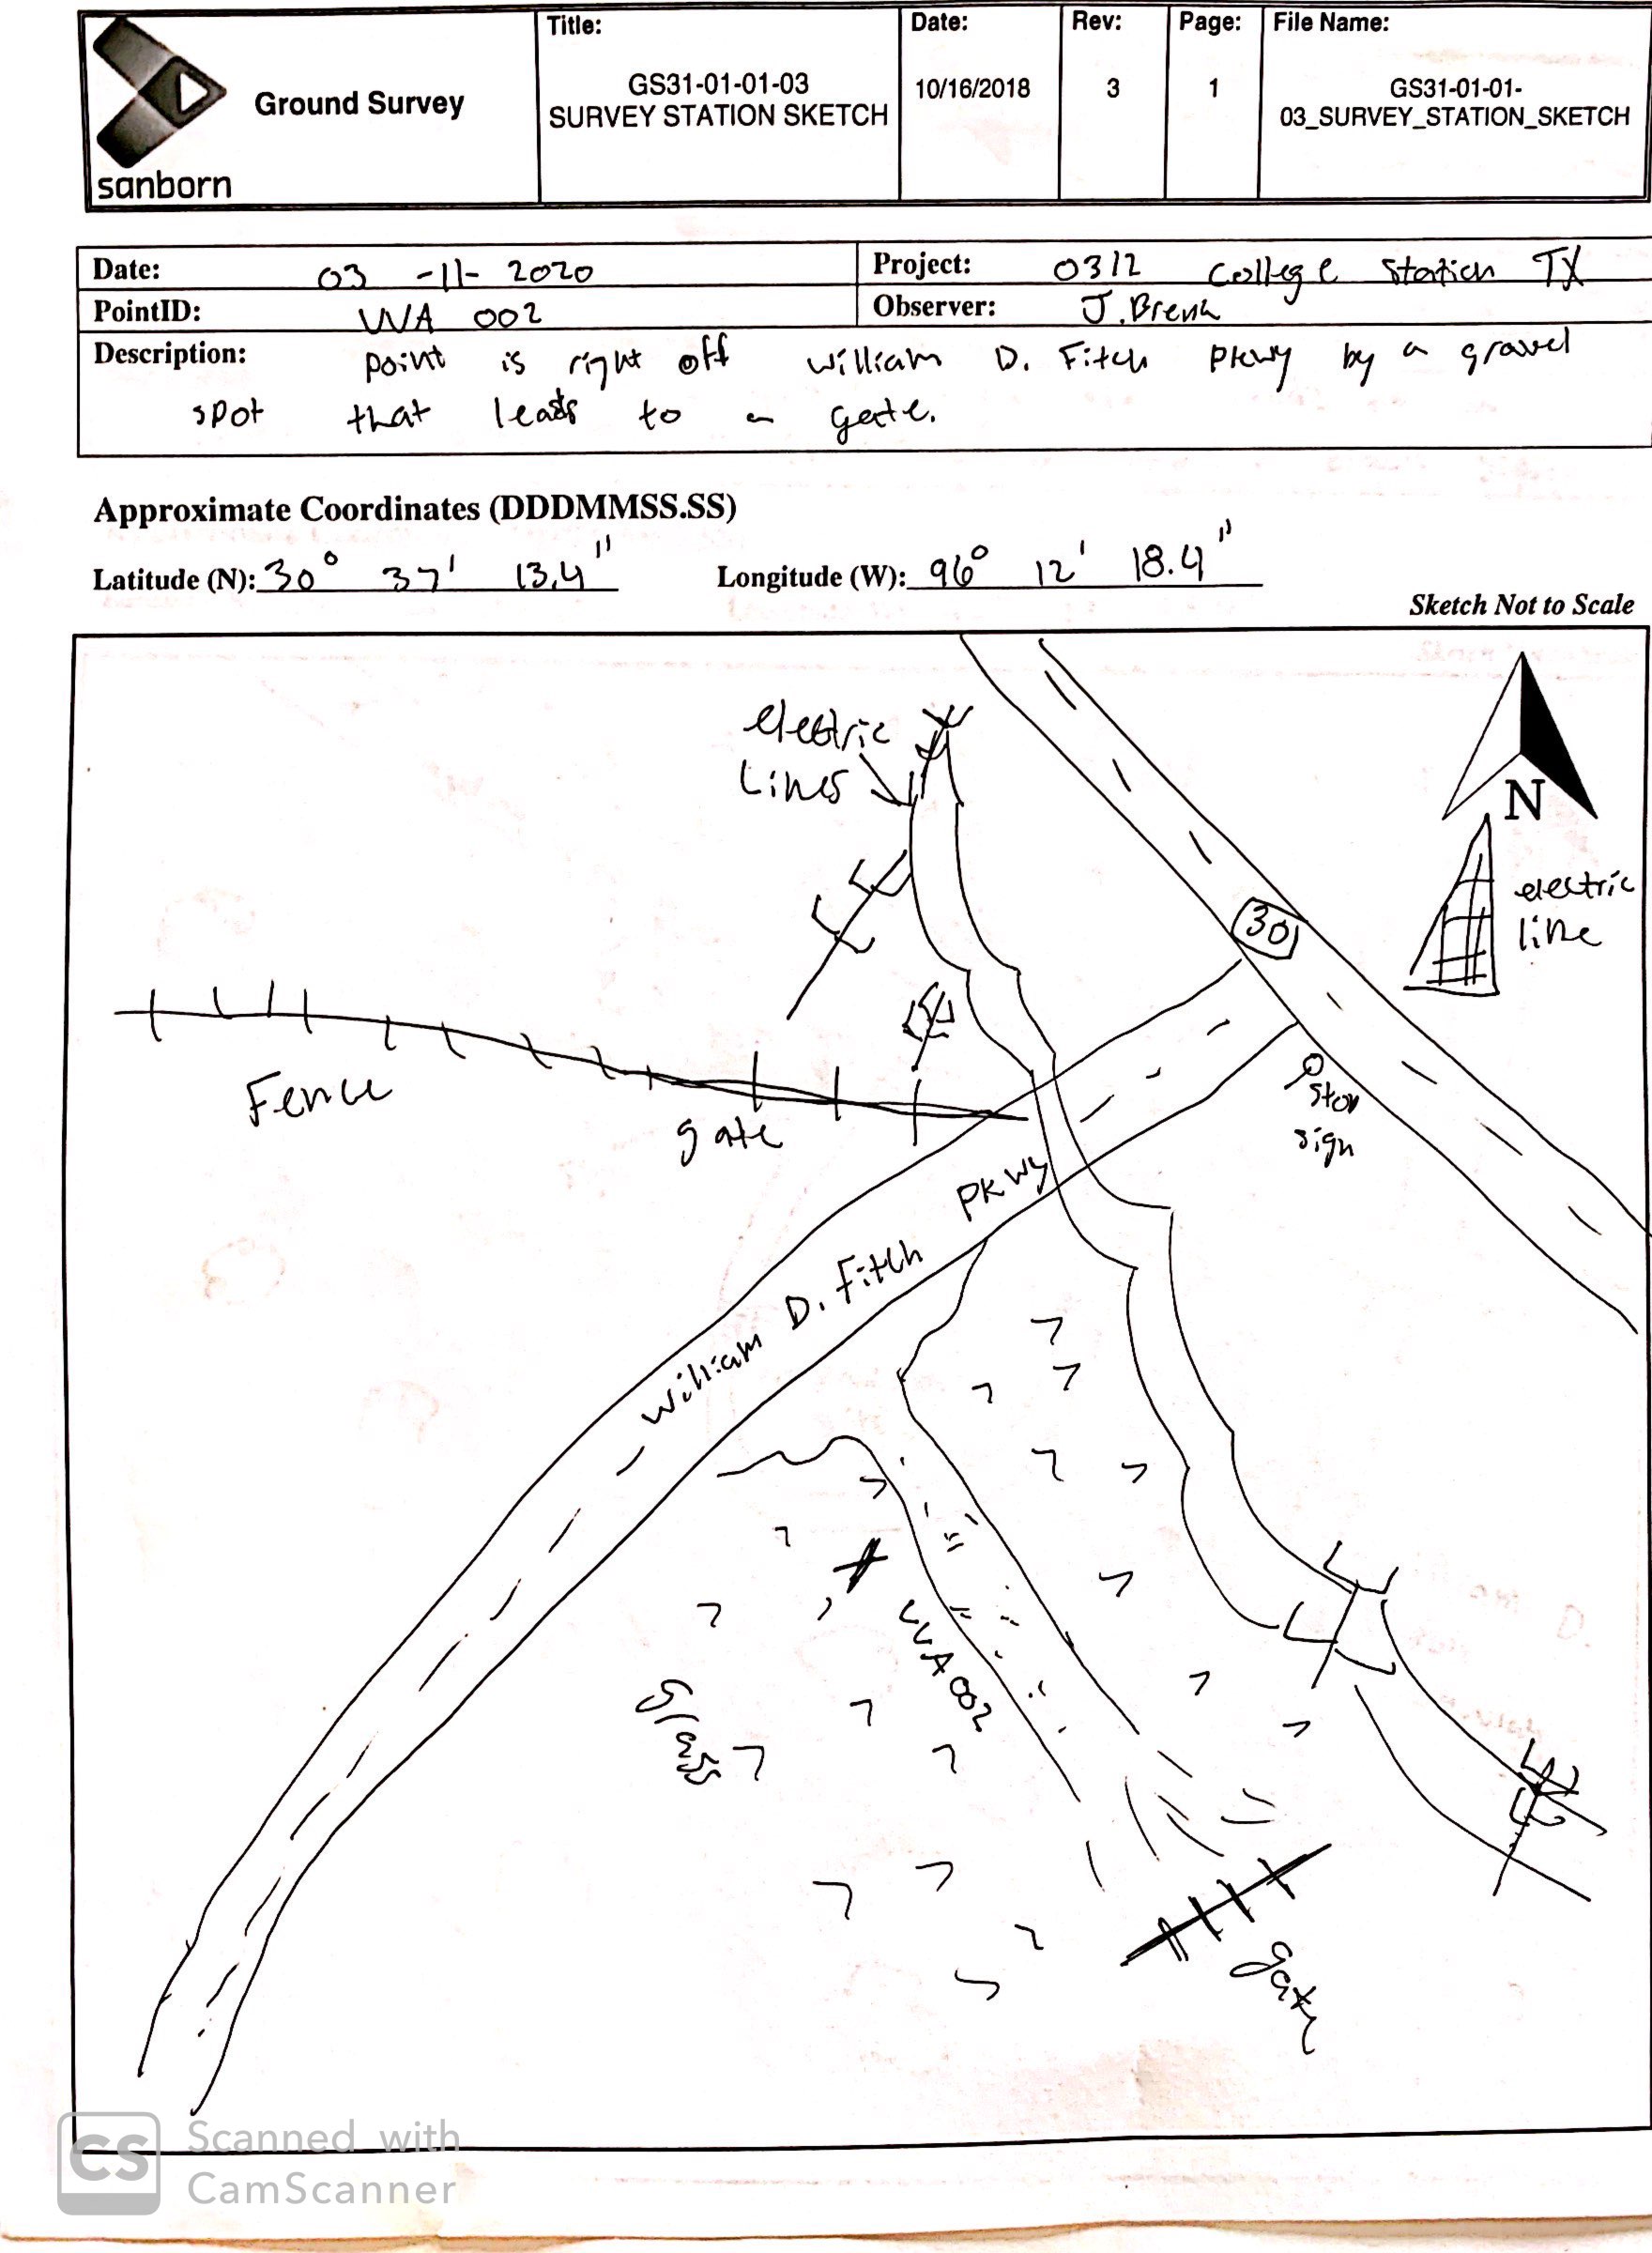 sanborn
Ground Survey
Title:
GS31-01-01-03
SURVEY STATION SKETCH
Date:
10/16/2018
Rev:
3
Page:
1
File Name:
GS31-01-01-
03_SURVEY_STATION_SKETCH
Date: 03 -11- 2020
Project: 0312 College Station TX
PointID: VVA 002
Observer: J.
Description: point is right off William D. Fitch Pkwy by a gravel
spot that leads to a gate.
Approximate Coordinates (DDDMMSS.SS)
Latitude (N): 30° 37' 13.4" Longitude (W): 96° 12' 18.4"
Sketch Not to Scale
electric
Lines
N
electric
line
30
Fence
gate
stop
sign
William D. Fitch PKWY
VVA 002
Grass
gate
CS
Scanned with
CamScanner